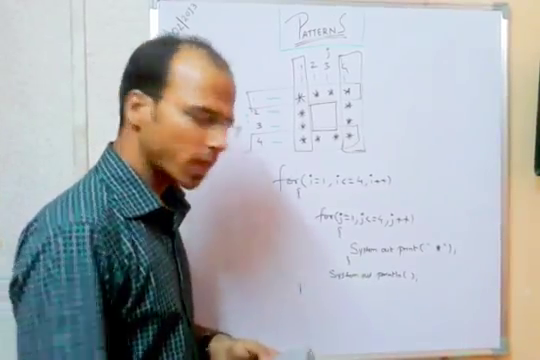 02/2013
PATTERNS
j
1 2 3 4
* * * *
2 * *
3 * *
4 * * * *
for(i=1, i<=4, i++)
{
for(j=1, j<=4, j++)
{
System.out.print(" *");
}
System.out.println();